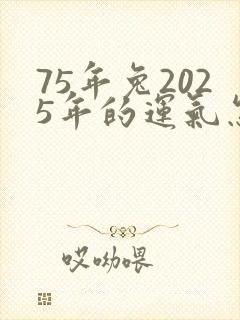 75年兔202
5年的運氣
哎呦喂